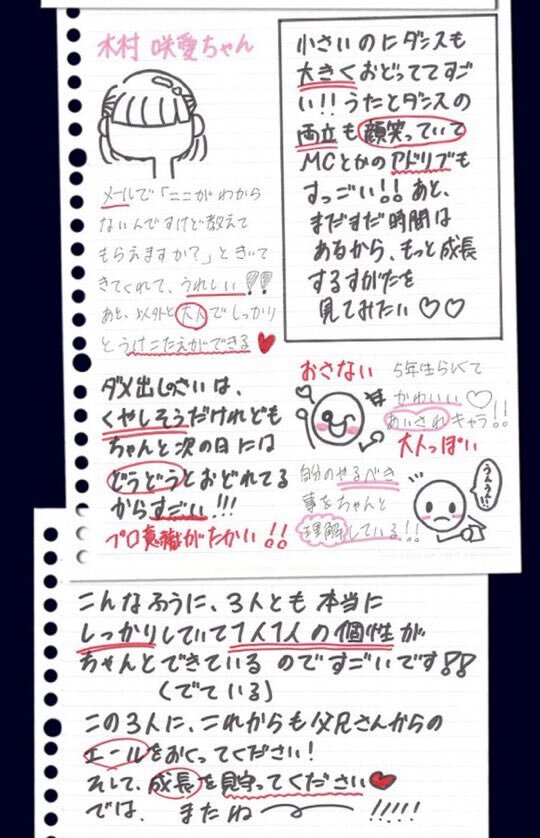 木村 咲愛ちゃん
メールで「ここがわから
ないんですけど教えて
もらえますか?」ときいて
きてくれて、うれしい!!
あと、以外と大人でしっかり
とうけこたえができる♥
小さいのにダンスも
大きくおどっててすご
い!!うたとダンスの
両立も顔笑っていて
MCとかのアドリブも
すっごい!!あと、
まだまだ時間は
あるから、もっと成長
するすがたを
見てみたい♡♡
ダメ出しのさいは、
くやしそうだけれども
ちゃんと次の日には
どうどうとおどれてる
からすごい!!!
プロ意識がたかい!!
おさない
5年生らしくて
かわいい♡
あいされキャラ!!
大人っぽい
自分のやるべき
事をちゃんと
理解している!!
うんうん!
こんなふうに、3人とも本当に
しっかりしていて1人1人の個性が
ちゃんとできているのですごいです!!
(でている)
この3人に、これからも父兄さんからの
エールをおくってください!
そして、成長を見守ってください♥
では、またねー!!!!!